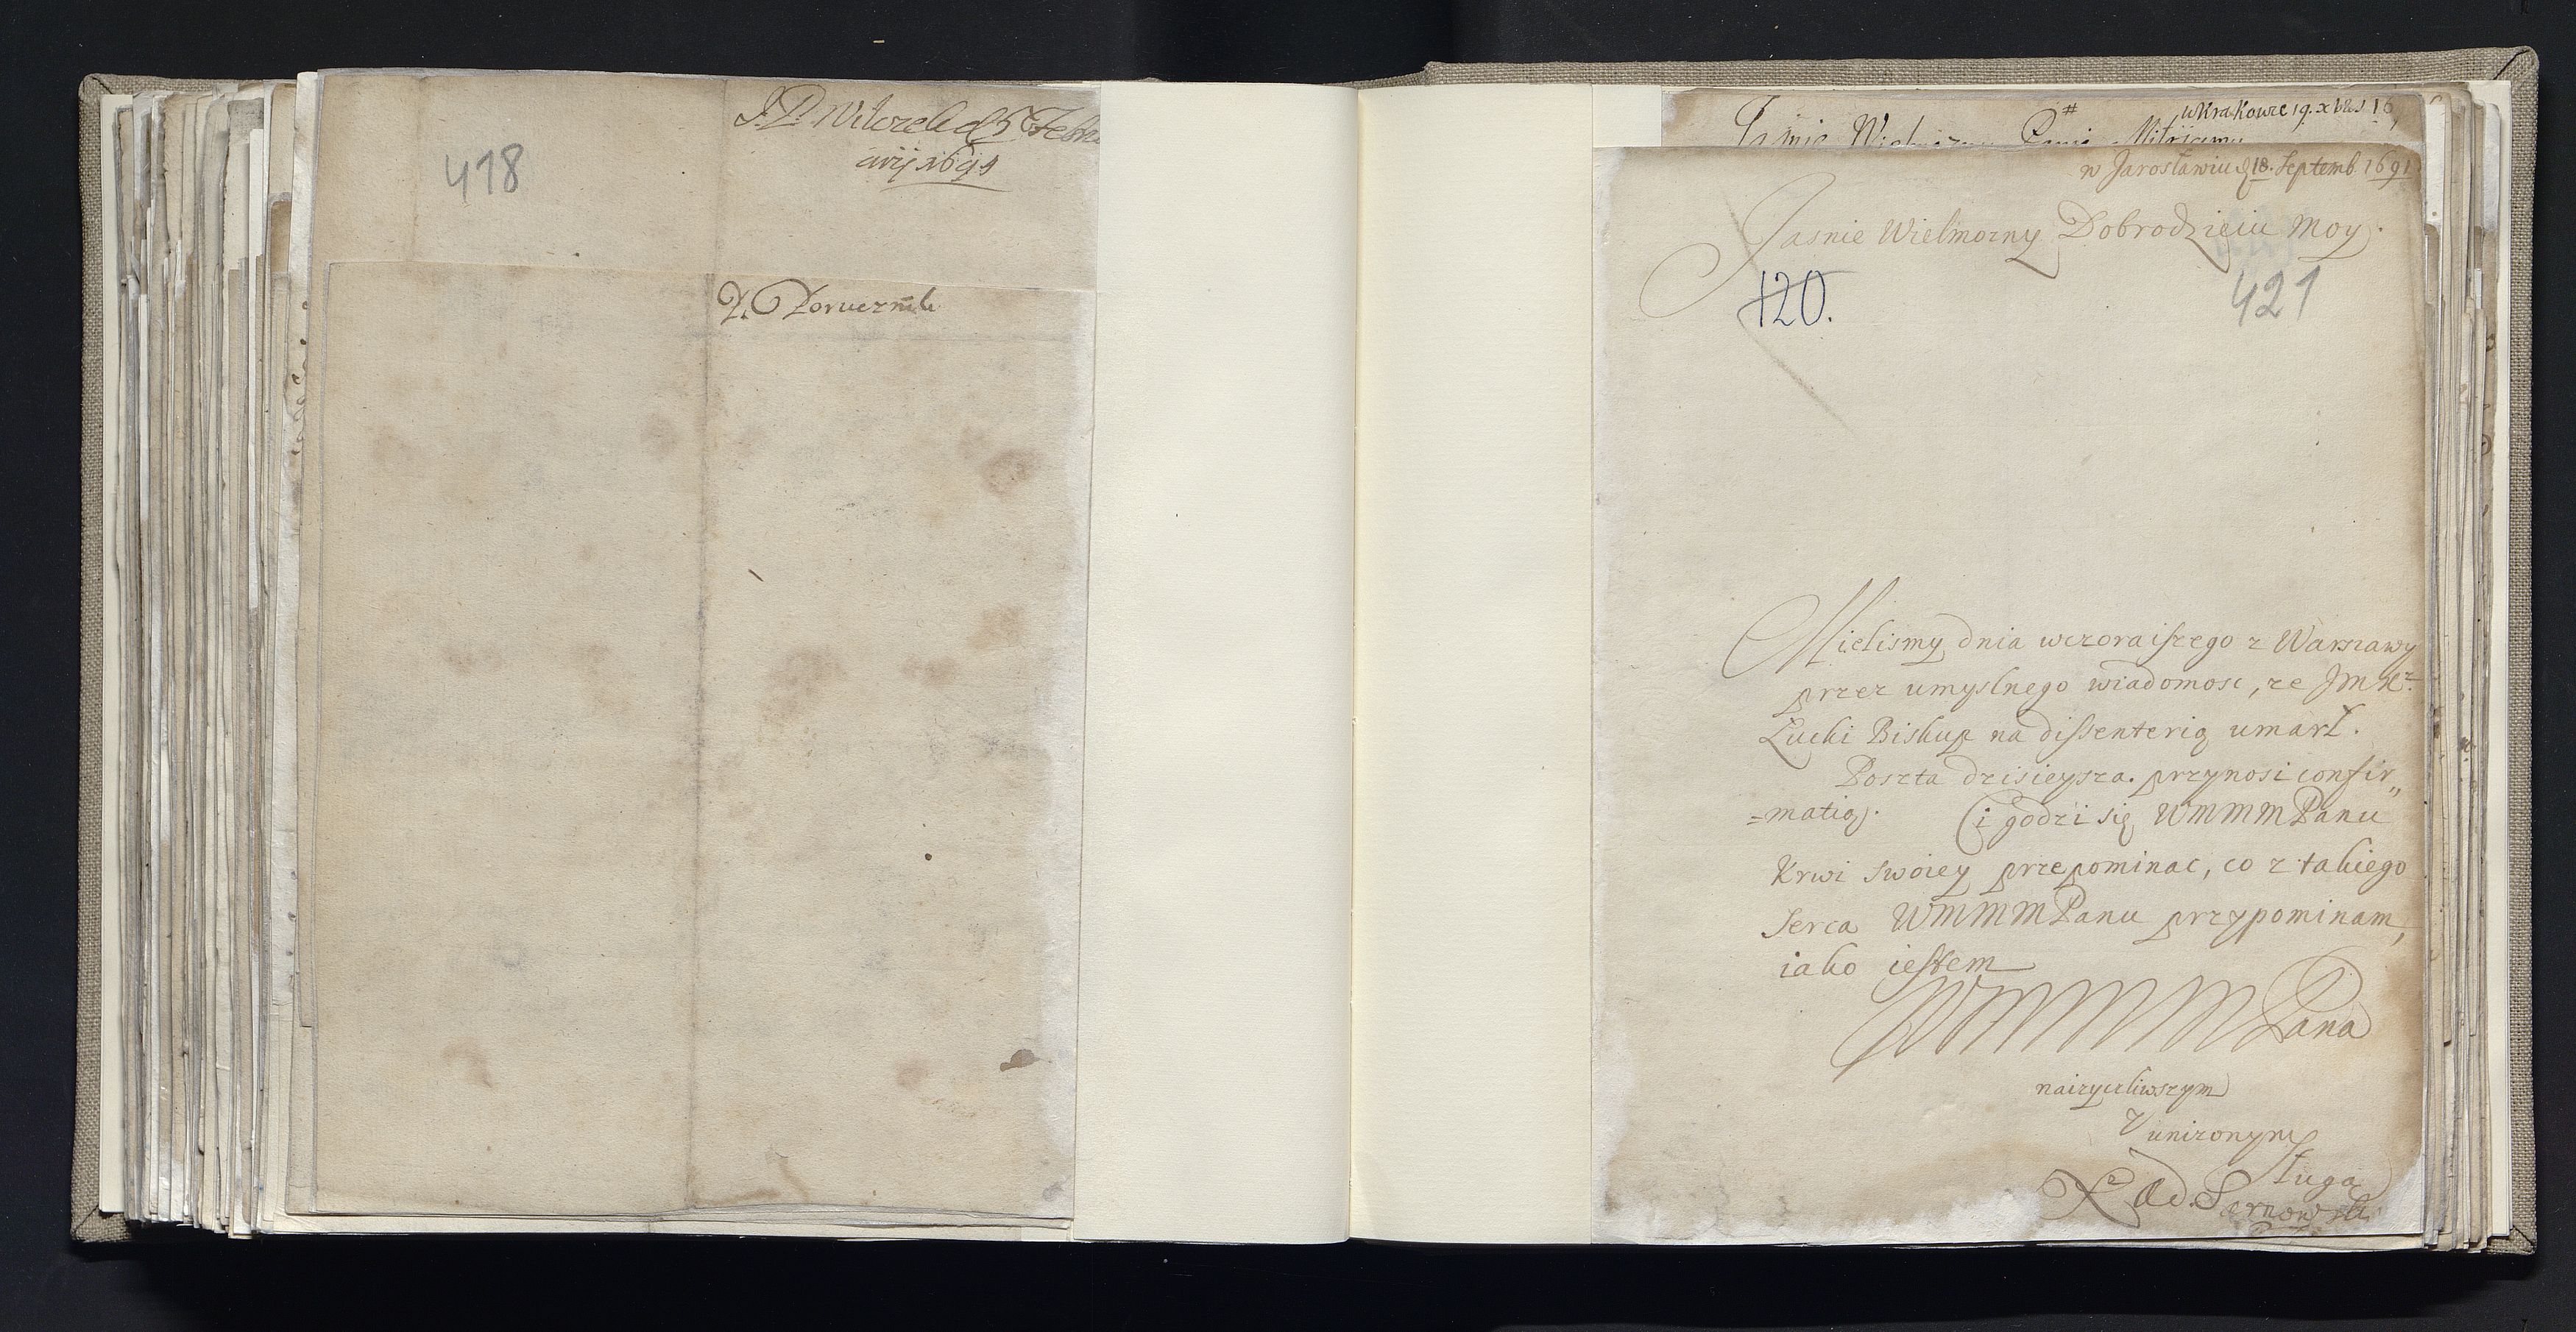 418
arij 1691
w Krakowie 19. xbris 16
w Jarosławiu d 18. Septemb. 1691
Jasnie Wielmozny Dobrodzieiu Moy.
120.
421
Mielismy dnia wczoraiszego z Warszawy
przez umyslnego wiadomosc, ze JmX.
Łucki Biskup na dissenterią umarł.
Poszta dzisieysza. przynosi confir„
=matią. i godzi się WMMMPanu
Krwi swoiey przepominac, co z takiego
Serca WMMMPanu przypominam,
iako iestem
WMMMPana
naizyczliwszym
Y unizonym
Sługa
X Ad. Sarnowski